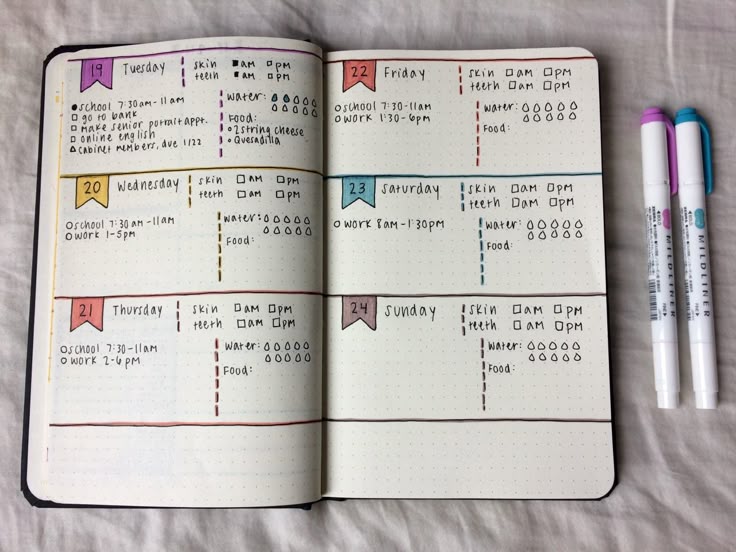 19 Tuesday
skin am pm
teeth am pm
school 7:30am-11am
go to bank
make senior portrait appt.
online english
cabinet members, due 1/22
water:
Food:
2 string cheese
Quesadilla
20 Wednesday
skin am pm
teeth am pm
school 7:30am-11am
work 1-5pm
water:
Food:
21 Thursday
skin am pm
teeth am pm
school 7:30-11am
work 2-6pm
water:
Food:
22 Friday
skin am pm
teeth am pm
school 7:30-11am
work 1:30-6pm
water:
Food:
23 Saturday
skin am pm
teeth am pm
work 8am-1:30pm
water:
Food:
24 Sunday
skin am pm
teeth am pm
water:
Food:
MILDLINER
MILDLINER